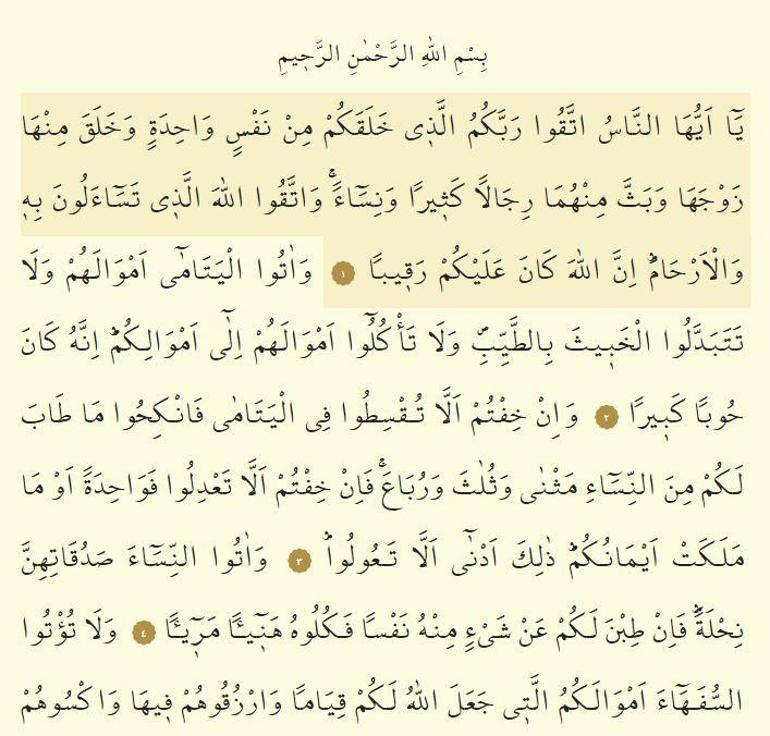 بِسْمِ اللّٰهِ الرَّحْمٰنِ الرَّح۪يمِ
يَٓا اَيُّهَا النَّاسُ اتَّقُوا رَبَّكُمُ الَّذ۪ى خَلَقَكُمْ مِنْ نَفْسٍ وَاحِدَةٍ وَخَلَقَ مِنْهَا
زَوْجَهَا وَبَثَّ مِنْهُمَا رِجَالًا كَث۪يرًا وَنِسَٓاءًۚ وَاتَّقُوا اللّٰهَ الَّذ۪ى تَسَٓاءَلُونَ بِه۪
وَالْاَرْحَامَۜ اِنَّ اللّٰهَ كَانَ عَلَيْكُمْ رَق۪يبًا ١ وَاٰتُوا الْيَتَامٰٓى اَمْوَالَهُمْ وَلَا
تَتَبَدَّلُوا الْخَب۪يثَ بِالطَّيِّبِۖ وَلَا تَأْكُلُٓوا اَمْوَالَهُمْ اِلٰٓى اَمْوَالِكُمْۜ اِنَّهُ كَانَ
حُوبًا كَب۪يرًا ٢ وَاِنْ خِفْتُمْ اَلَّا تُقْسِطُوا فِى الْيَتَامٰى فَانْكِحُوا مَا طَابَ
لَكُمْ مِنَ النِّسَٓاءِ مَثْنٰى وَثُلٰثَ وَرُبَاعَۚ فَاِنْ خِفْتُمْ اَلَّا تَعْدِلُوا فَوَاحِدَةً اَوْ مَا
مَلَكَتْ اَيْمَانُكُمْۜ ذٰلِكَ اَدْنٰٓى اَلَّا تَعُولُواۜ ٣ وَاٰتُوا النِّسَٓاءَ صَدُقَاتِهِنَّ
نِحْلَةًۜ فَاِنْ طِبْنَ لَكُمْ عَنْ شَىْءٍ مِنْهُ نَفْسًا فَكُلُوهُ هَن۪ٓيـًٔا مَر۪ٓيـًٔا ٤ وَلَا تُؤْتُوا
السُّفَهَٓاءَ اَمْوَالَكُمُ الَّت۪ى جَعَلَ اللّٰهُ لَكُمْ قِيَامًا وَارْزُقُوهُمْ ف۪يهَا وَاكْسُوهُمْ